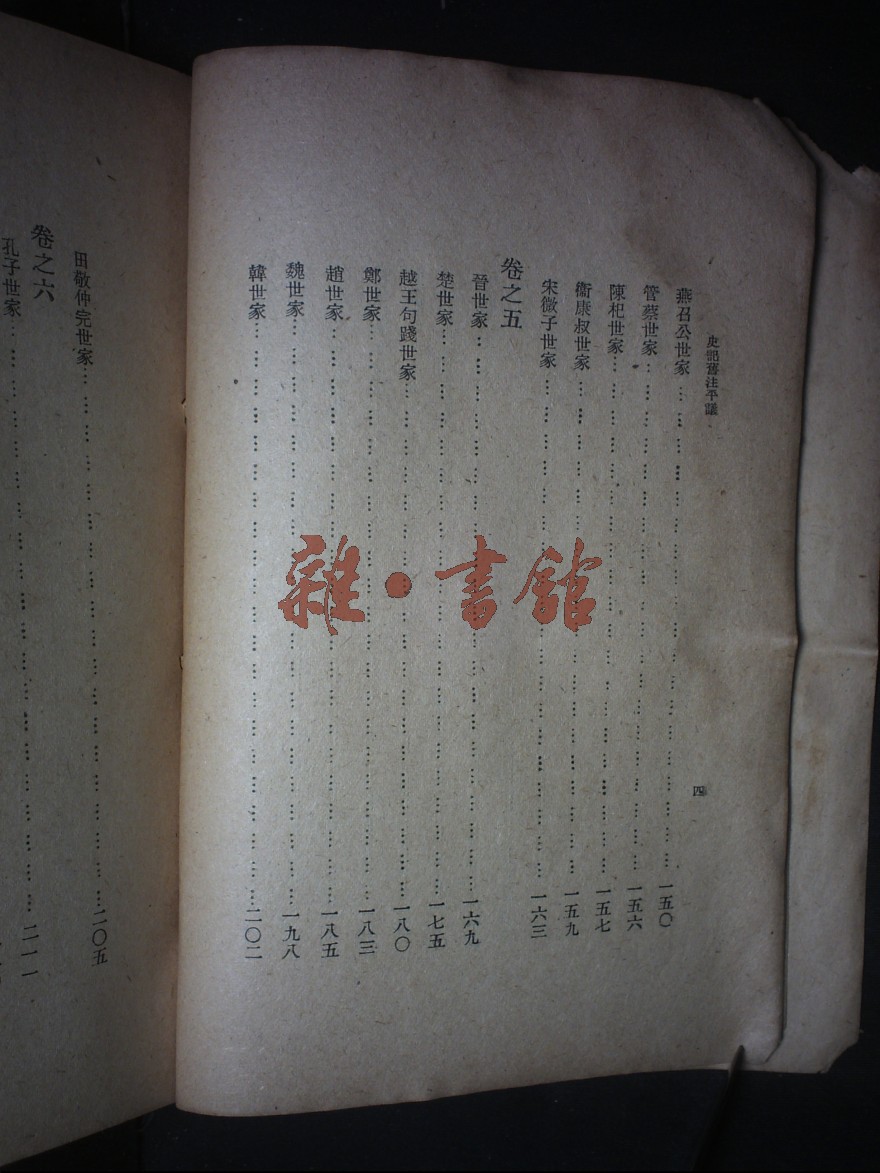 史記舊注平議
四
燕召公世家 一五〇
管蔡世家 一五六
陳杞世家 一五七
衞康叔世家 一五九
宋微子世家 一六三
卷之五
晉世家 一六九
楚世家 一七五
越王句踐世家 一八〇
鄭世家 一八三
趙世家 一八五
魏世家 一九八
韓世家 二〇二
田敬仲完世家 二〇五
卷之六
孔子世家 二一一
雜·書館